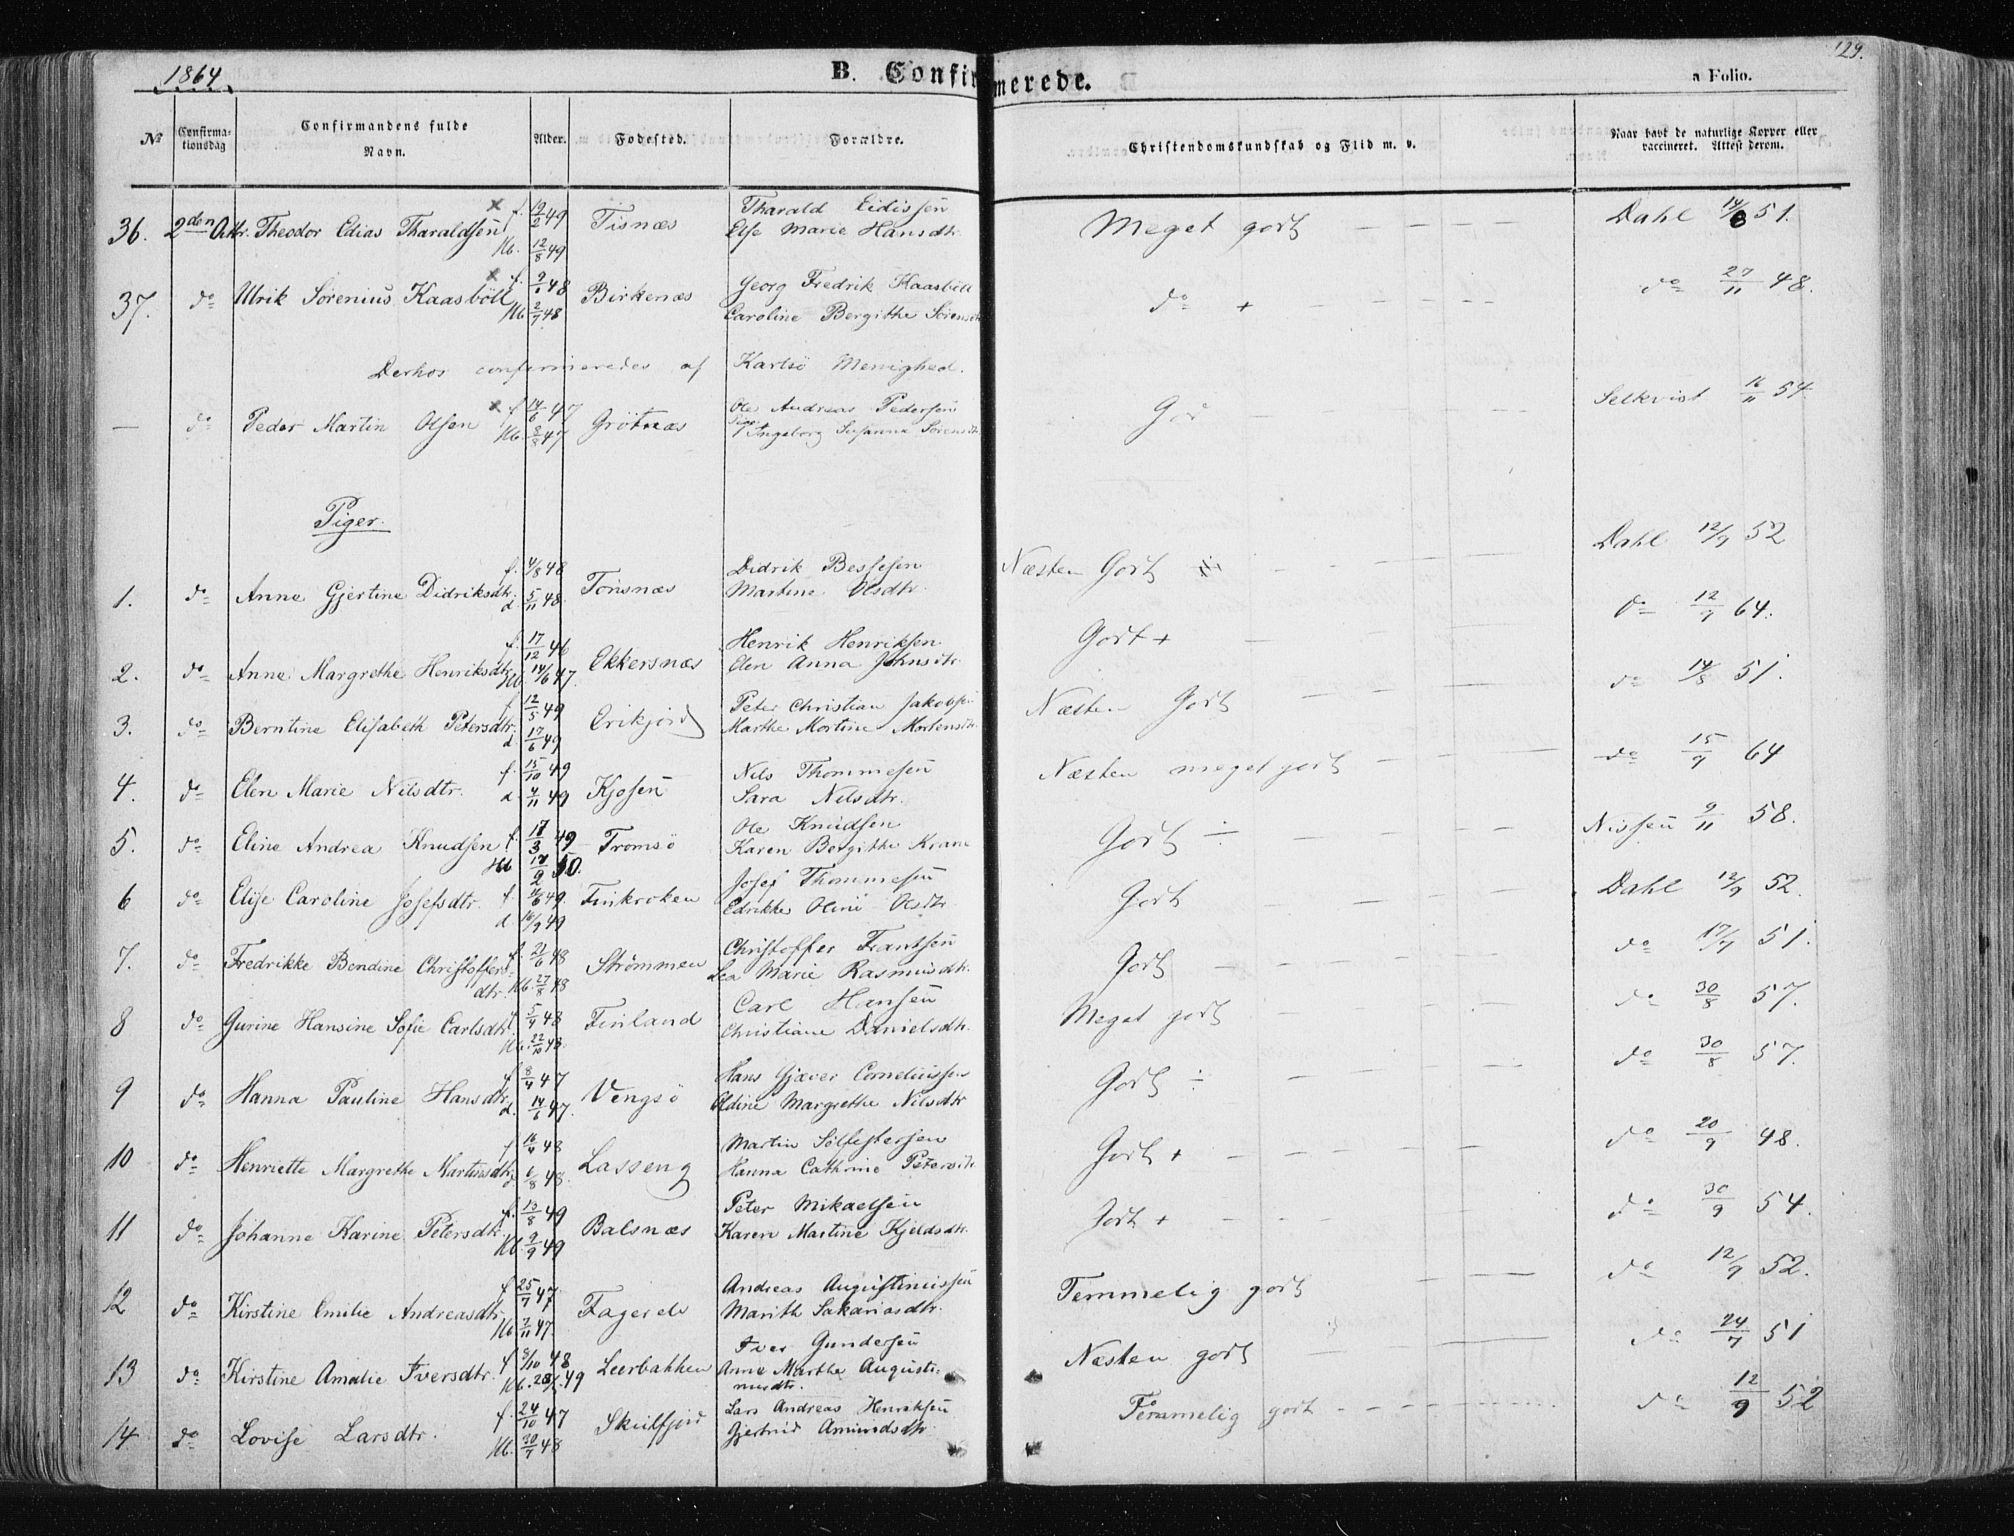 1864.
B. Confirmerede.
129.
a Folio.
No
Confirmationsdag
Confirmandens fulde Navn.
Alder.
Fødested.
Forældre.
Christendomskundskab og Flid m. v.
Naar havt de naturlige Kopper eller vaccineret. Attest derom.
36. 2den Octbr. Theodor Edias Tharaldsen f. 19/2 49 Hb. 12/8 49 Tisnæs Tharald Eidissen Else Marie Hansdtr. Meget godt Dahl 14/8 51.
37. do Ulrik Sørenius Kaasböll Hb. 2/7 48 Birkenæs Georg Fredrik Kaasböll Caroline Bergithe Sörensdtr do + do 27/11 48.
Derhos confirmeredes af Karlsö Menighed.
— do Peder Martin Olsen f. 14/6 47 Hb. 8/8 47 Grötnæs Ole Andreas Pedersen Ingeborg Susanna Sörensdtr. God Selkvist 16/11 54.
Piger.
1. do Anne Gjertine Didriksdtr. f. 4/8 48 d. 5/11 48. Tönsnæs Didrik Bessesen Martine Olsdtr. Næsten Godt Dahl 12/9 52
2. do Anne Margrethe Henriksdtr. f. 17/12 46 Hb. 14/6 47. Ekkersnæs Henrik Henriksen Elen Anna Johnsdtr. Godt + do 12/9 64.
3. do Berntine Elisabeth Petersdtr. f. 12/5 49 d. 17/6 49 Erikjord Peter Christian Jakobsen Marthe Mortine Mortensdtr. Næsten Godt do 14/8 51.
4. do Elen Marie Nilsdtr. f. 15/10 49 d. 4/11 49 Kjosen Nils Thommesen Sara Nilsdtr. Næsten meget godt do 15/9 64
5. do Eline Andrea Knudsen f. 17/3 49 Hb. 17/2 50. Tromsö Ole Knudsen Karen Bergithe Krane Godt ÷ Nissen 9/11 58.
6 do Elise Caroline Josefsdtr. f. 11/6 49. d. 16/9 49 Finkroken Josef Thommesen Edrikke Oline Olsdtr. Godt Dahl 12/9 52.
7. do Fredrikke Bendine Christoffersdtr. f. 21/6 48 Hb. 27/8 48 Strömmen Christoffer Frantsen Lea Marie Rasmusdtr. Godt do 17/7 51.
8 do Gurine Hansine Sofie Carlsdtr. f. 5/9 48 Hb. 22/10 48. Finland Carl Hansen Christiane Danielsdtr. Meget godt do 30/8 57.
9 do Hanna Pauline Hansdtr. f. 8/4 47 d. 14/6 47. Vengsö Hans Gjæver Corneliussen Oldine Margrethe Nilsdtr Godt ÷ do 30/8 57.
10 do Henriette Margrethe Martinsdtr. f. 16/4 48 6/8 48. Lasseng Martin Sölfestersen Hanna Cathrine Petersdtr. Godt + do 20/9 48.
11 do Johanne Karine Petersdtr. f. 13/8 49 Hb. 9/9 49 Balsnæs Peter Mikaelsen Karen Martine Kjeldsdtr. Godt + do 30/9 54.
12 do Kirstine Emilie Andreasdtr. f. 25/7 47. Hb. 7/11 47. Fagerelv Andreas Augustinussen Marith Sakariasdtr. Temmelig godt do 12/9 52.
13 do Kirstine Amalie Iversdtr. f. 3/10 48 Hb. 28/1 49 Leerbakken Iver Gundersen Anne Marthe Augustinusdtr. Næsten godt do 24/7 51
14 do Lovise Larsdtr. f. 24/10 47 Hb. 30/7 48 Skulsfjord Lars Andreas Henriksen Gjertrud Amundsdtr. Temmelig godt do 12/9 52